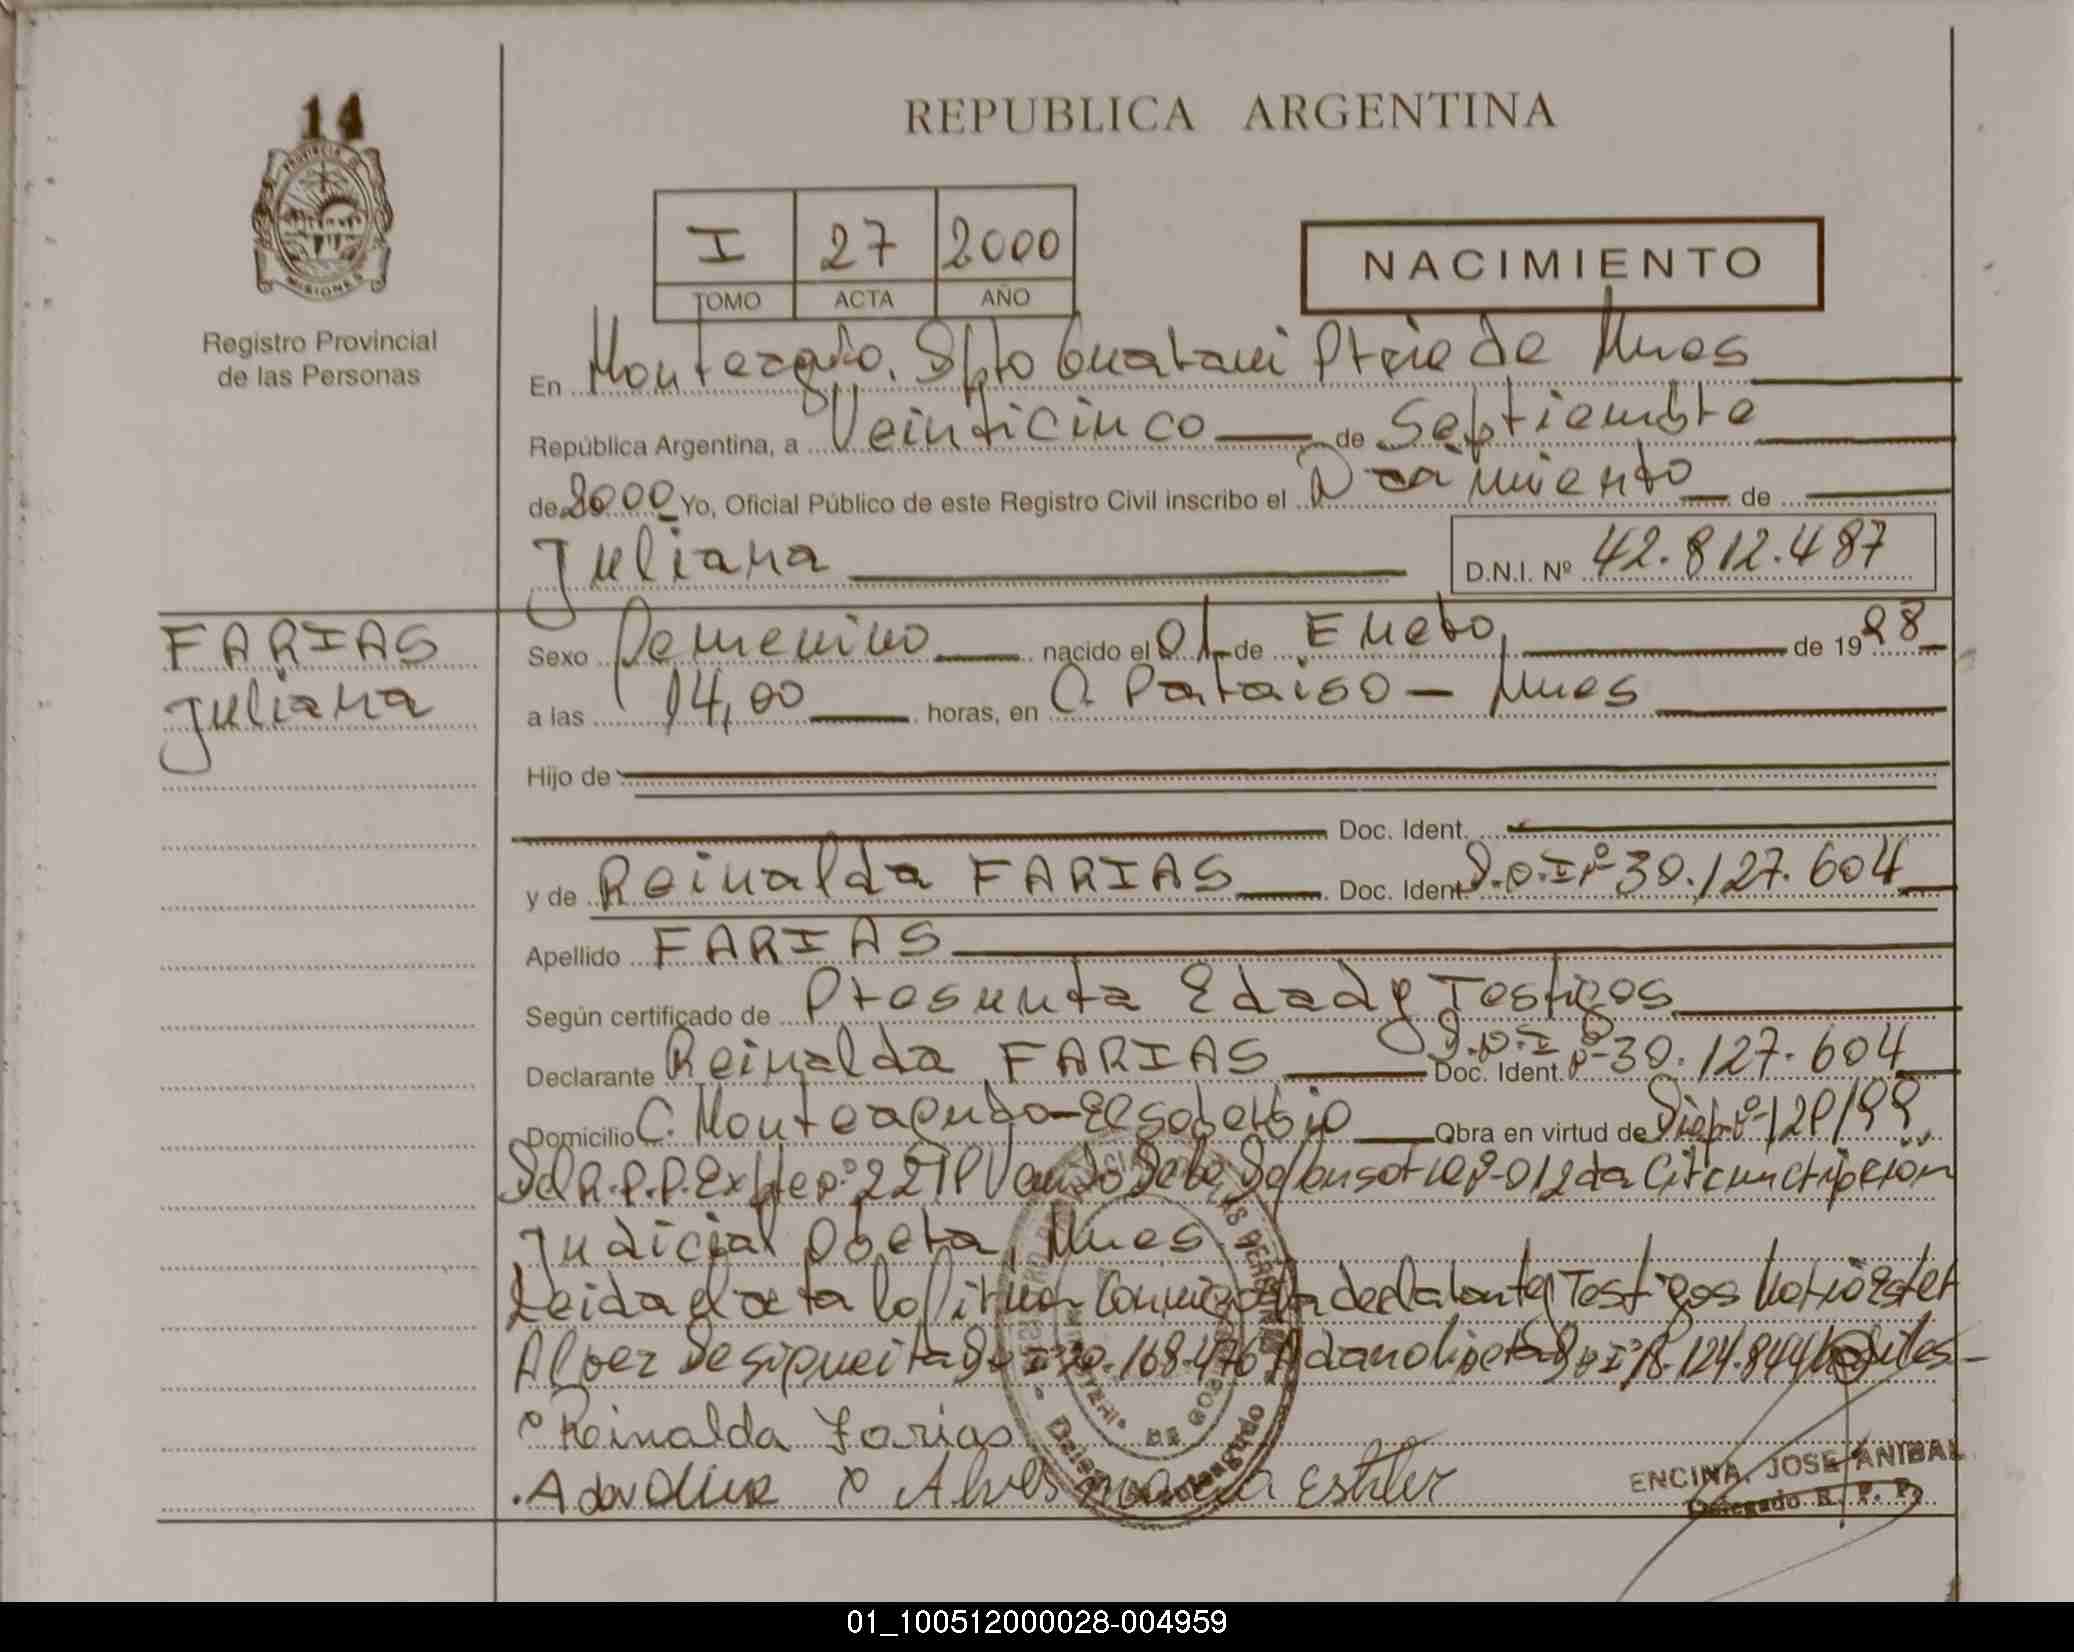 14
REPUBLICA ARGENTINA
PROVINCIA DE
MISIONES
Registro Provincial
de las Personas
I 27 2000
TOMO ACTA AÑO
NACIMIENTO
En Monteagudo. Dpto Guarani Pcia de Mnes
República Argentina, a Veinticinco de Septiembre
de 2000 Yo, Oficial Público de este Registro Civil inscribo el Nacimiento de
Juliana D.N.I. Nº 42.812.487
FARIAS
Juliana
Sexo Femenino nacido el 01 de Enero, de 19 98
a las 14,00 horas, en C. Paraiso - Mnes
Hijo de
Doc. Ident.
y de Reinalda FARIAS Doc. Ident. D.N.I Nº 30.127.604
Apellido FARIAS
Según certificado de Presunta Edad y Testigos
Declarante Reinalda FARIAS Doc. Ident. D.N.I Nº 30.127.604
Domicilio C. Monteagudo - El Soberbio Obra en virtud de Disp. Nº
Del R.P.P. Expte Nº de la Defensoria Nº 01 2da Circunscripción
Judicial Obera, Mnes
Leida el acta la firman conmigo la declarante y Testigos
Alvez De Siqueira
Reinalda Farias
Alves Ester
ENCINA, JOSE ANIBAL
Delegado R. P. P.
01_100512000028-004959